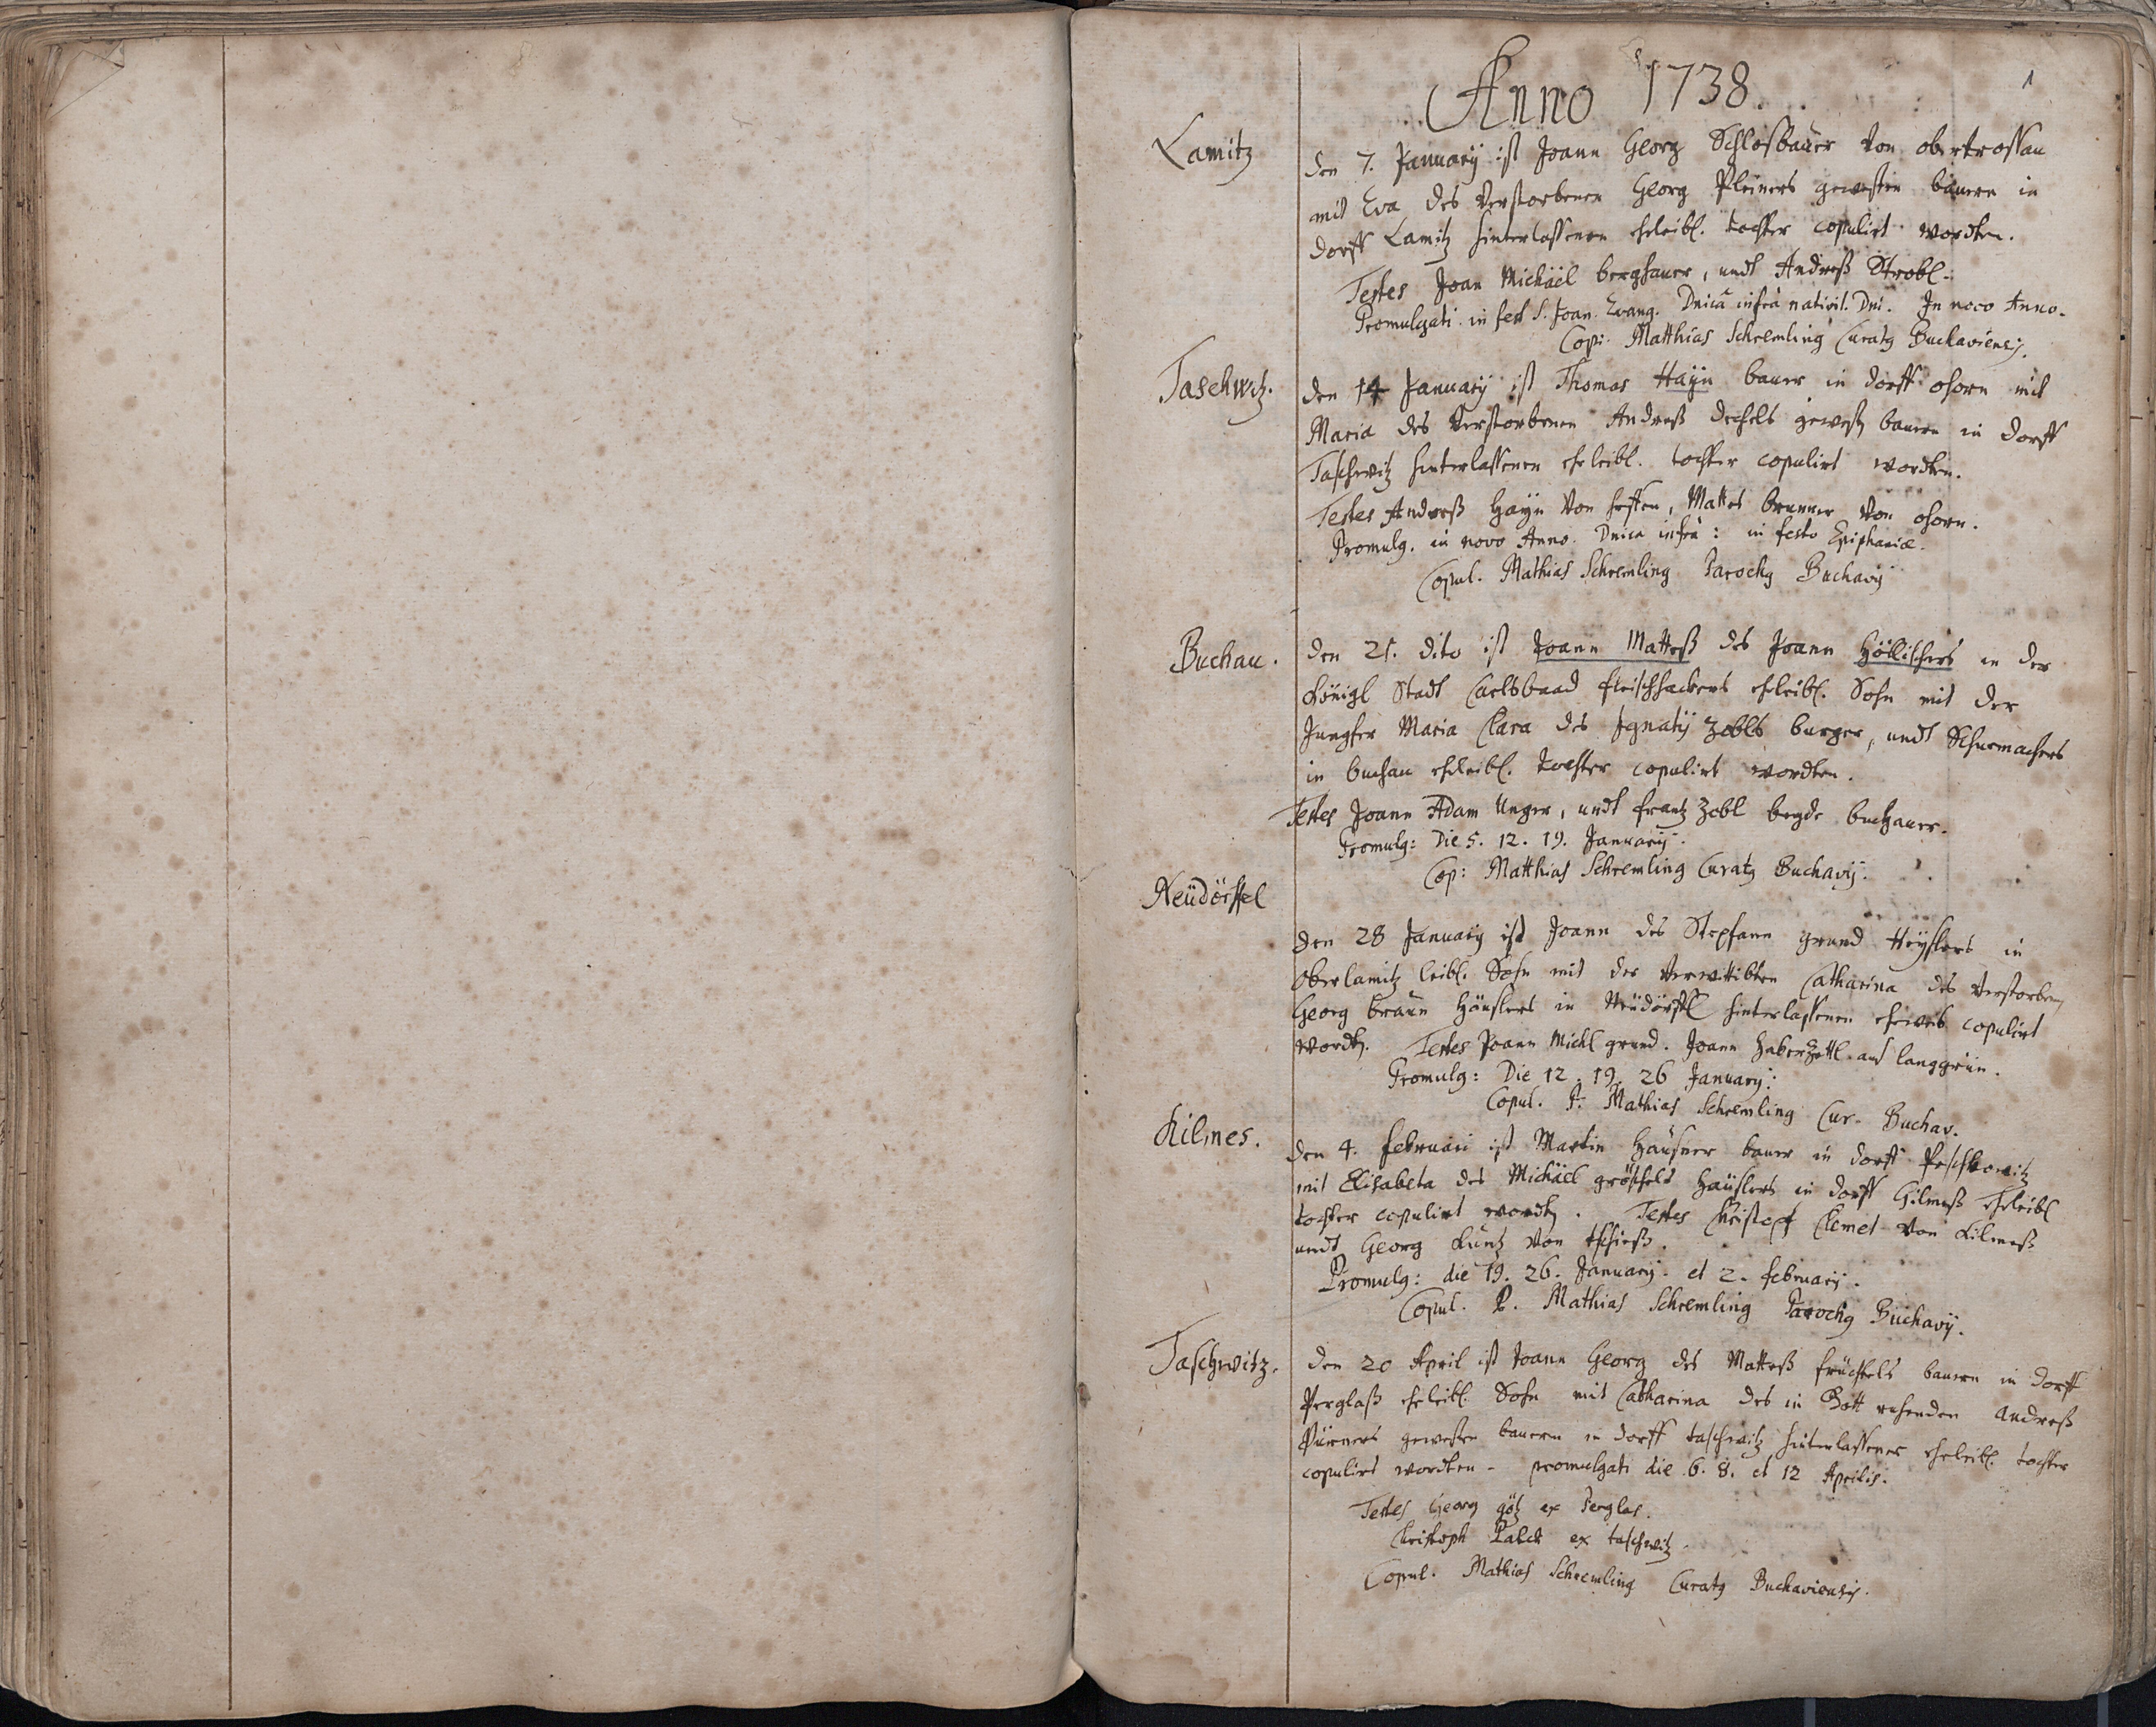 1
Anno 1738.
Lamitz
den 7. January ist Joann Georg Schlosbauer von obertrossau
mit Eva des verstorbenen Georg Pleiners gewesten bauern in
dorff Lamitz hinterlassenen eheleibl. tochter copulirt wordten.
Testes Joan Michäel berghauer, undt Andreß Strobl.
Promulgati in fest S. Joan. Evang. Dnicâ infrà nativit. Dni. In novo Anno.
Cop: Matthias Schremling Curatg Buchaviensis.
Taschwitz.
den 14 January ist Thomas Hayn bauer in dorff ohorn mit
Maria des verstorbenen Andreß gewesten bauern in dorff
Taschwitz hinterlassenen eheleibl. tochter copulirt wordten.
Testes Andreß Hayn von, Mattes brunner von ohorn.
Promulg. in novo Anno. Dnica infrà: in festo Epiphaniæ.
Copul. Mathias Schremling Parochg Buchavij
Buchau.
den 21. dito ist Joann Matteß des Joann Höllischers in der
Königl Stadt Carlsbaad fleischhackers eheleibl. Sohn mit der
Jungfer Maria Clara des Ignatij Zebls burger, undt Schuemachers
in buchau eheleibl. tochter copulirt wordten.
Testes Joann Adam Unger, undt frantz Zebl beyde buchauer.
Promulg: Die 5. 12. 19. Januarij.
Cop: Matthias Schremling Curatg Buchavij.
Neüdörffel
den 28 January ist Joann des Stephann grund Heyslers in
Oberlamitz leibl. Sohn mit der verwittibten Catharina des verstorbenen
Georg braun Häuslers in Neüdörffl hinterlassenen eheweib copulirt
wordten. Testes Joann Michl grund. Joann haberzettl aus langgrün.
Promulg: Die 12. 19. 26 January.
Copul. P. Mathias Schremling Cur. Buchav.
Kilmes.
den 4. februari ist Martin Häusner bauer in dorff
mit Elisabeta des Michäel gröschels Häuslers in dorff Gilmeß Eheleibl
tochter copulirt wordten. Testes Christoph Clemet von Kilmeß
undt Georg Küntz von
Promulg: die 19. 26. January. et 2. februarij.
Copul. P. Mathias Schremling Parochg Buchavij.
Taschwitz.
den 20 April ist Joann Georg des Matteß früchtels bauern in dorff
Perglaß eheleibl. Sohn mit Catharina des in Gott ruhenden Andreß
Pürners gewesten bauern in dorff taschwitz hinterlassener eheleibl. tochter
copulirt wordten. promulgati die 6. 8. et 12 Aprilis.
Testes Georg götz ex Perglas.
Christoph Palck ex taschwitz.
Copul. Mathias Schremling Curatg Buchaviensis.